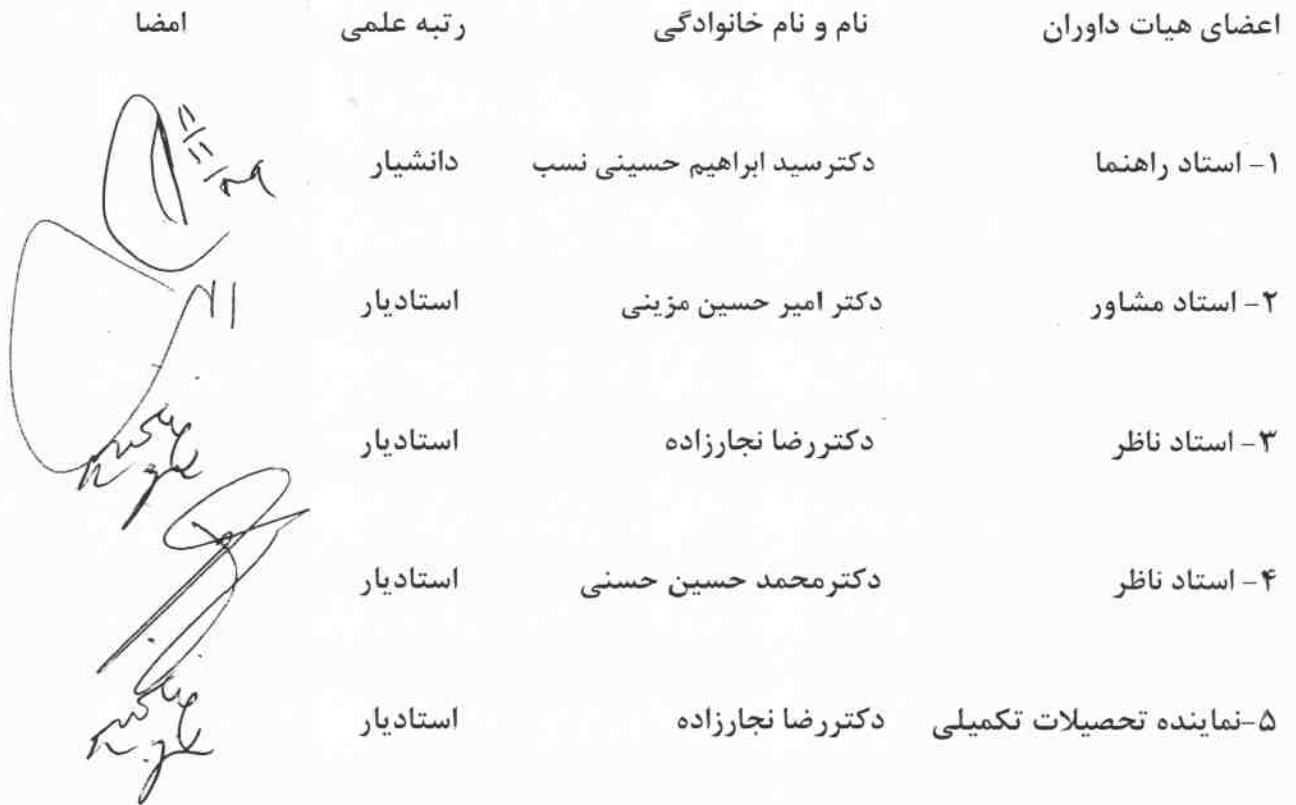 اعضای هیات داوران نام و نام خانوادگی رتبه علمی امضا
۱- استاد راهنما دکترسید ابراهیم حسینی نسب دانشیار
۲- استاد مشاور دکتر امیر حسین مزینی استادیار
۳- استاد ناظر دکتررضا نجارزاده استادیار
۴- استاد ناظر دکترمحمد حسین حسنی استادیار
۵-نماینده تحصیلات تکمیلی دکتررضا نجارزاده استادیار